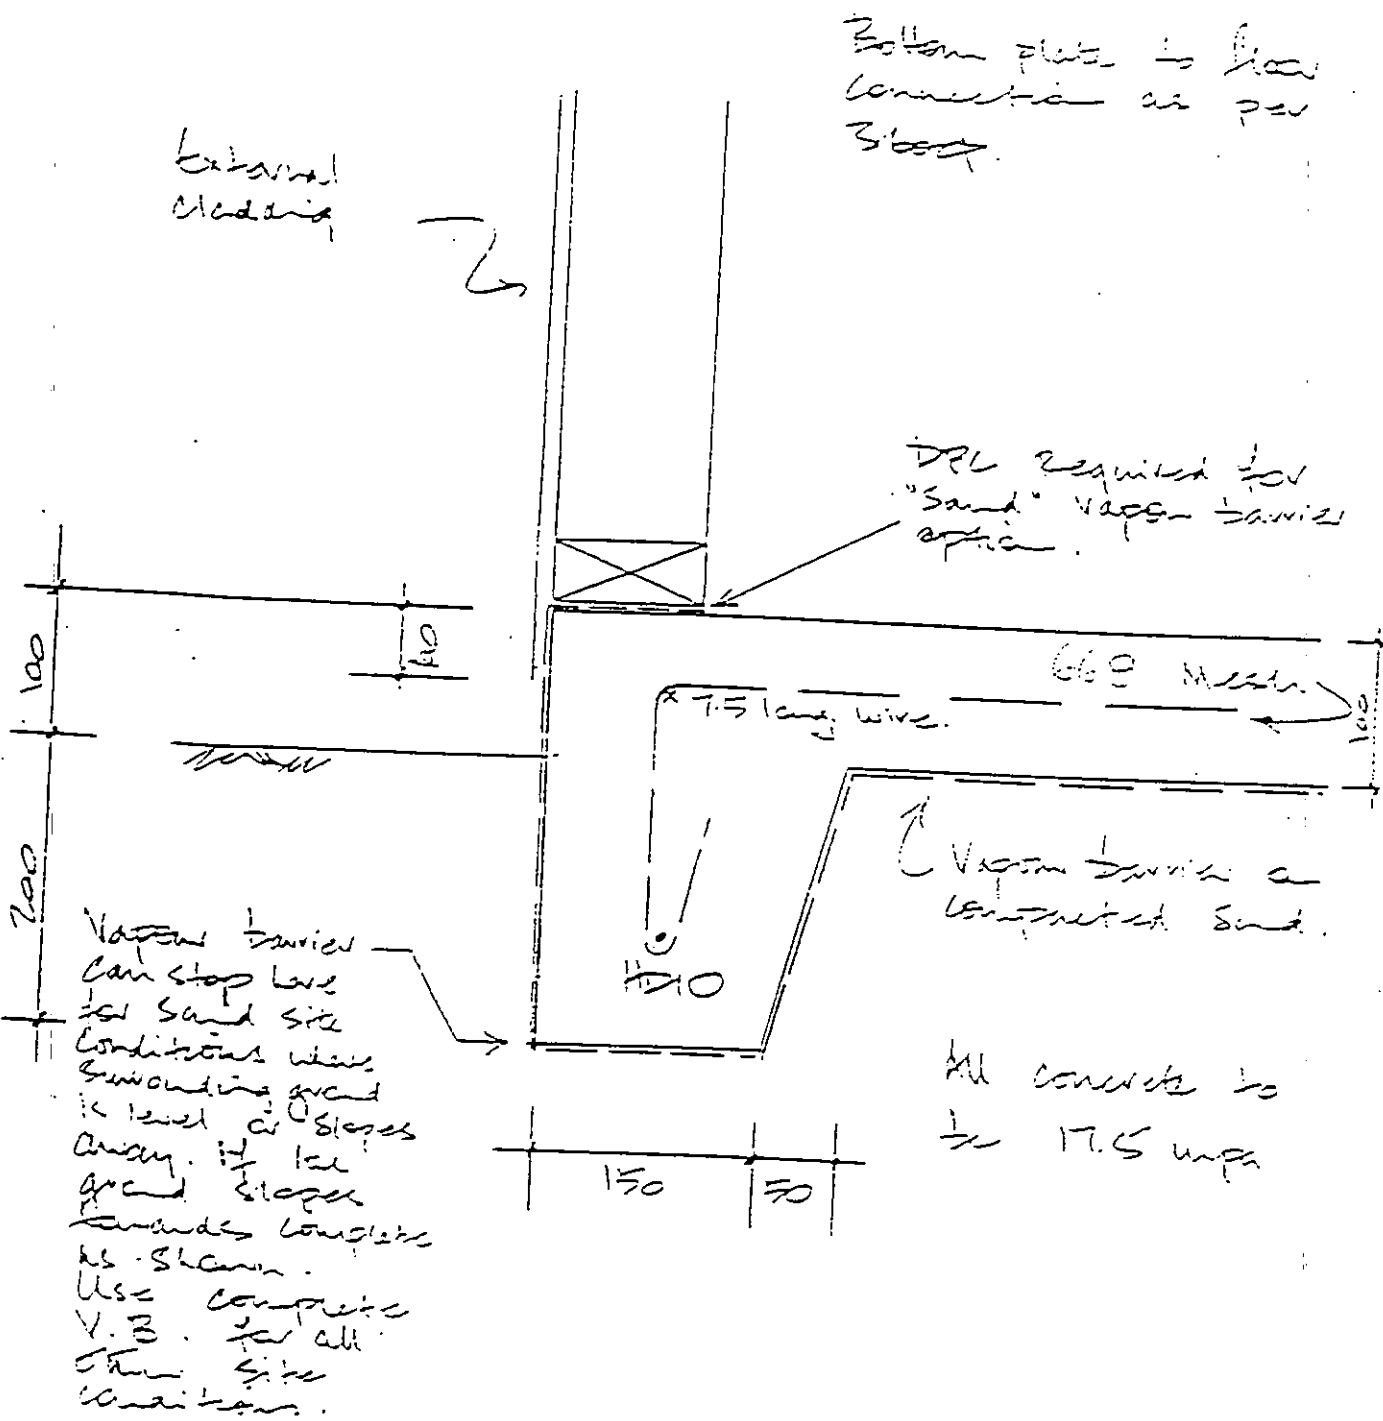 Bottom plate to floor
connection as per
External
cladding
DPC Required for
"Sand" Vapour barrier
option.
100
668 Mesh.
7.5 long wire.
100
200
Vapour barrier on
compacted Sand.
Vapour barrier
can stop here
for Sand Site
Conditions where
Surrounding ground
is level or Slopes
away. If the
ground slopes
towards complete
as shown.
Use complete
V.B. for all
other site
conditions.
HD10
All concrete to
be 17.5 mpa
150
50